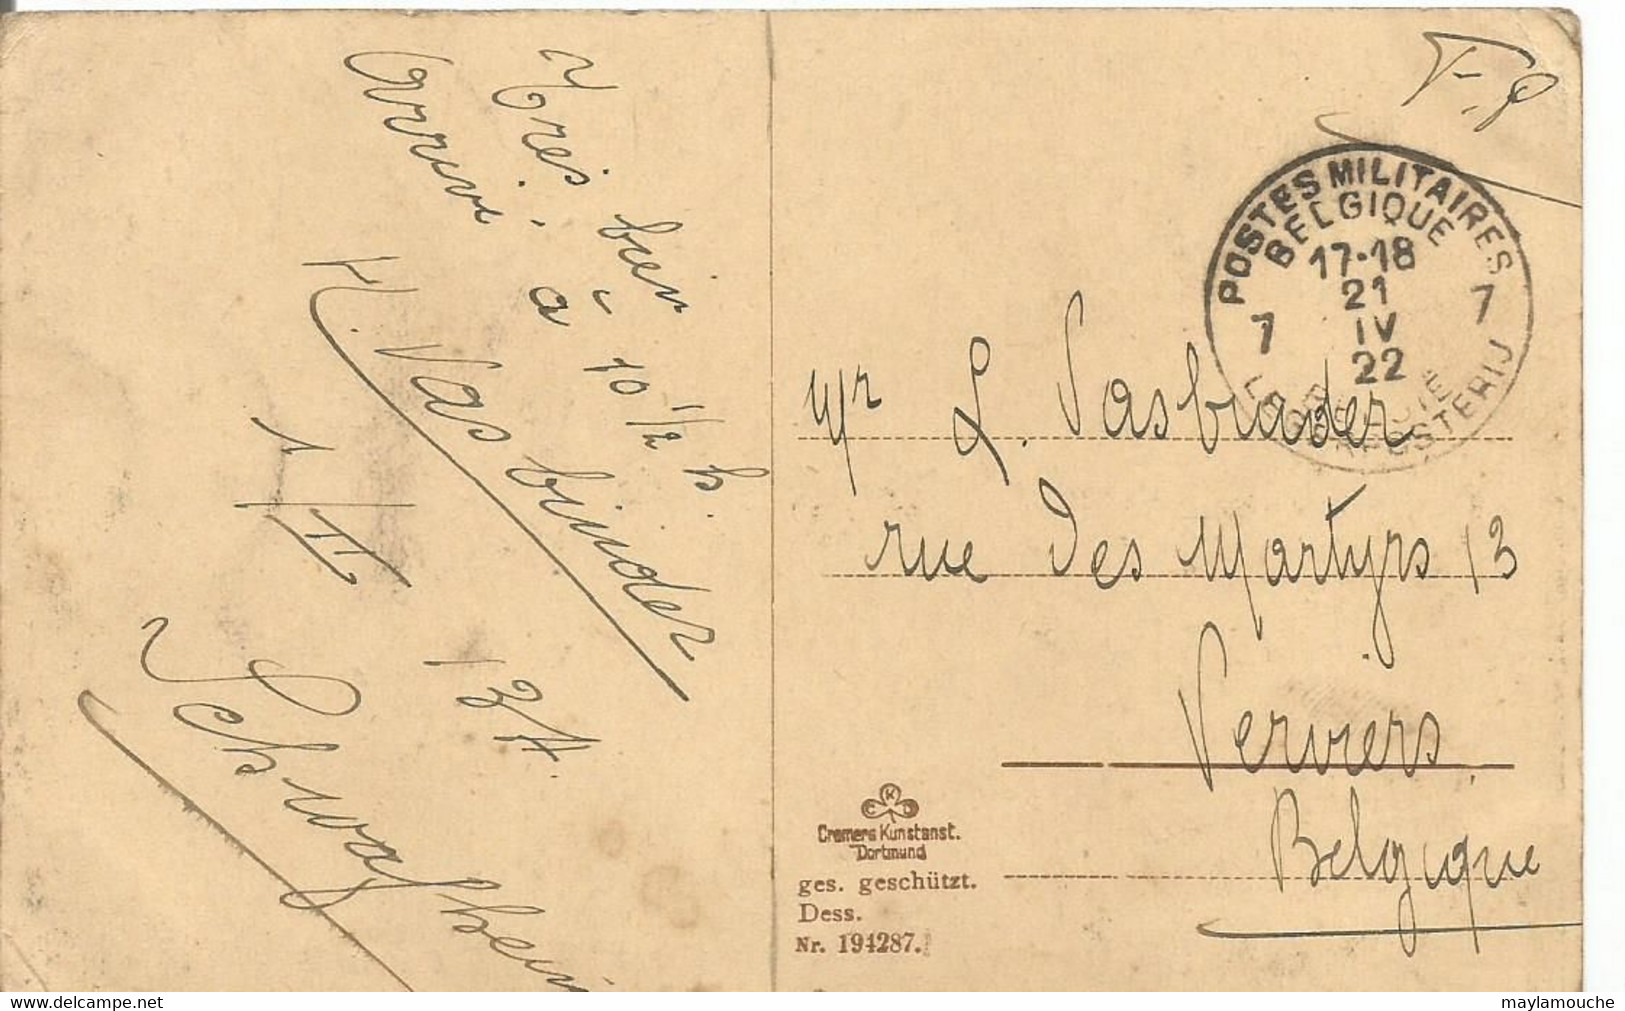 Très bien
arrivé à 10 1/2 h.
H. Vasbinder
1/II
13 A.
Schwafheim
F.S.
POSTES MILITAIRES
BELGIQUE
17-18
21
IV
22
7 7
LEGERPOSTERIJ
Mr L. Vasbinder
rue des Martyrs 13
Verviers
Belgique
C K D
Cramers Kunstanst.
Dortmund
ges. geschützt.
Dess.
Nr. 194287.
delcampe.net
maylamouche